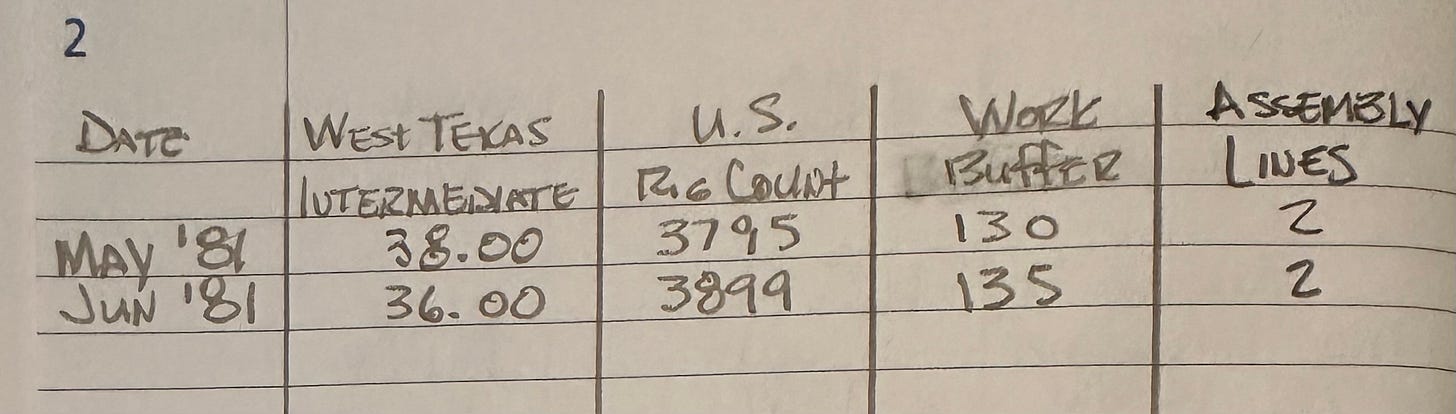 2
Date West Texas U.S. Work Assembly
Intermediate Rig Count Buffer Lines
May '81 38.00 3795 130 2
Jun '81 36.00 3899 135 2